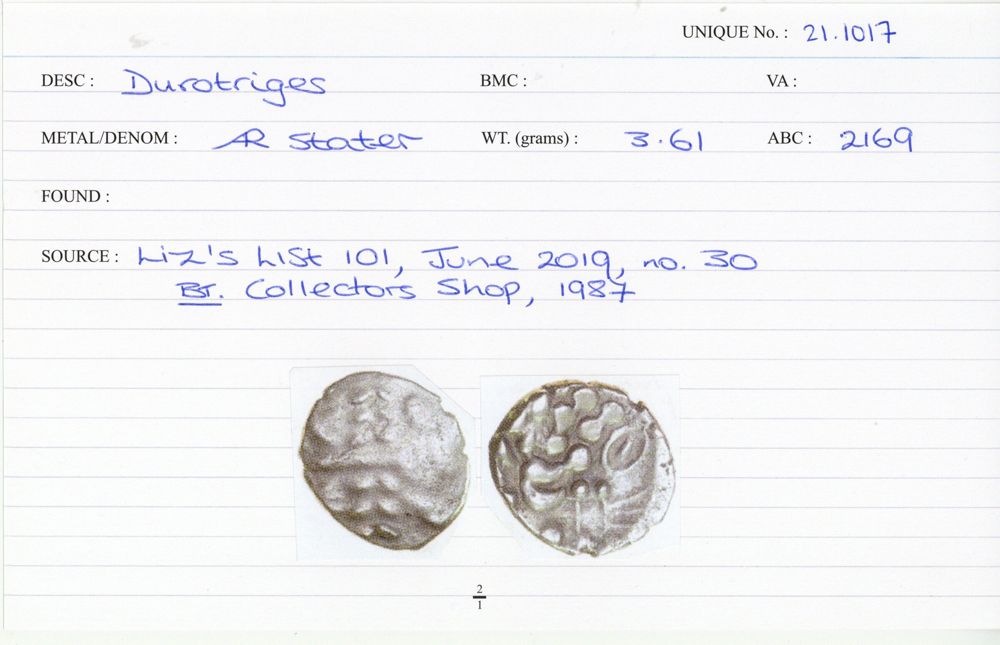 UNIQUE No. : 21.1017
DESC : Durotriges BMC : VA :
METAL/DENOM : AR Stater WT. (grams) : 3.61 ABC : 2169
FOUND :
SOURCE : Liz's List 101, June 2019, no. 30
BT. Collectors Shop, 1987
2
1